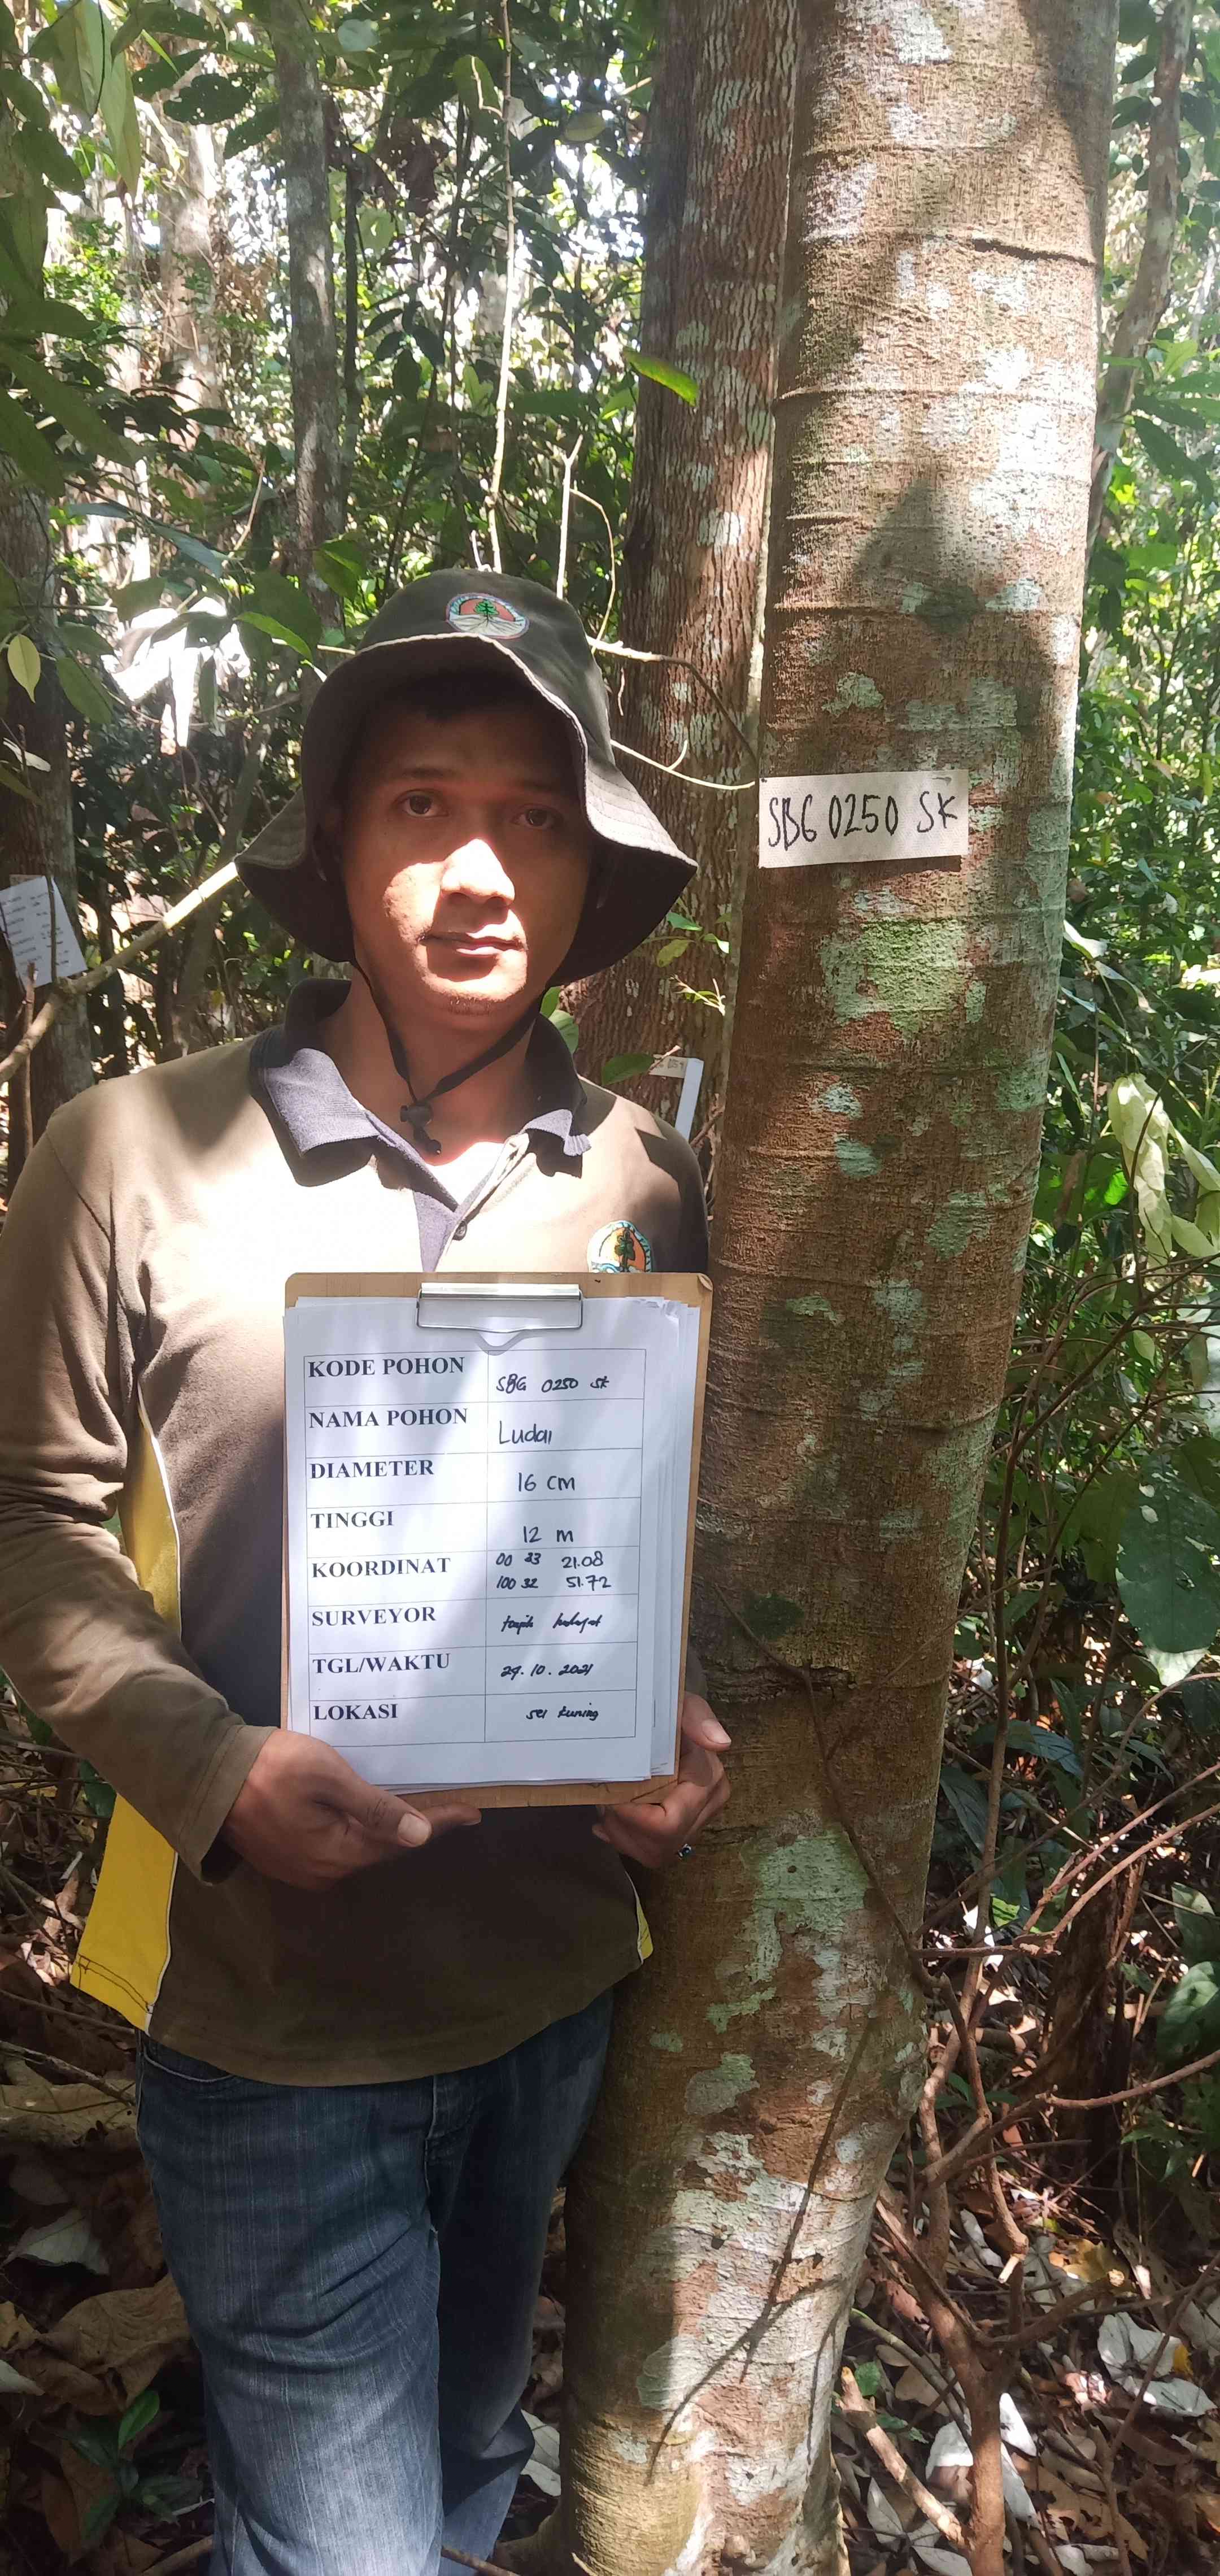 SBG 0250 SK
KODE POHON SBG 0250 SK
NAMA POHON Ludai
DIAMETER 16 cm
TINGGI 12 m
KOORDINAT 00 23 21.08
100 32 51.72
SURVEYOR
TGL/WAKTU 29.10.2021
LOKASI sei kuning